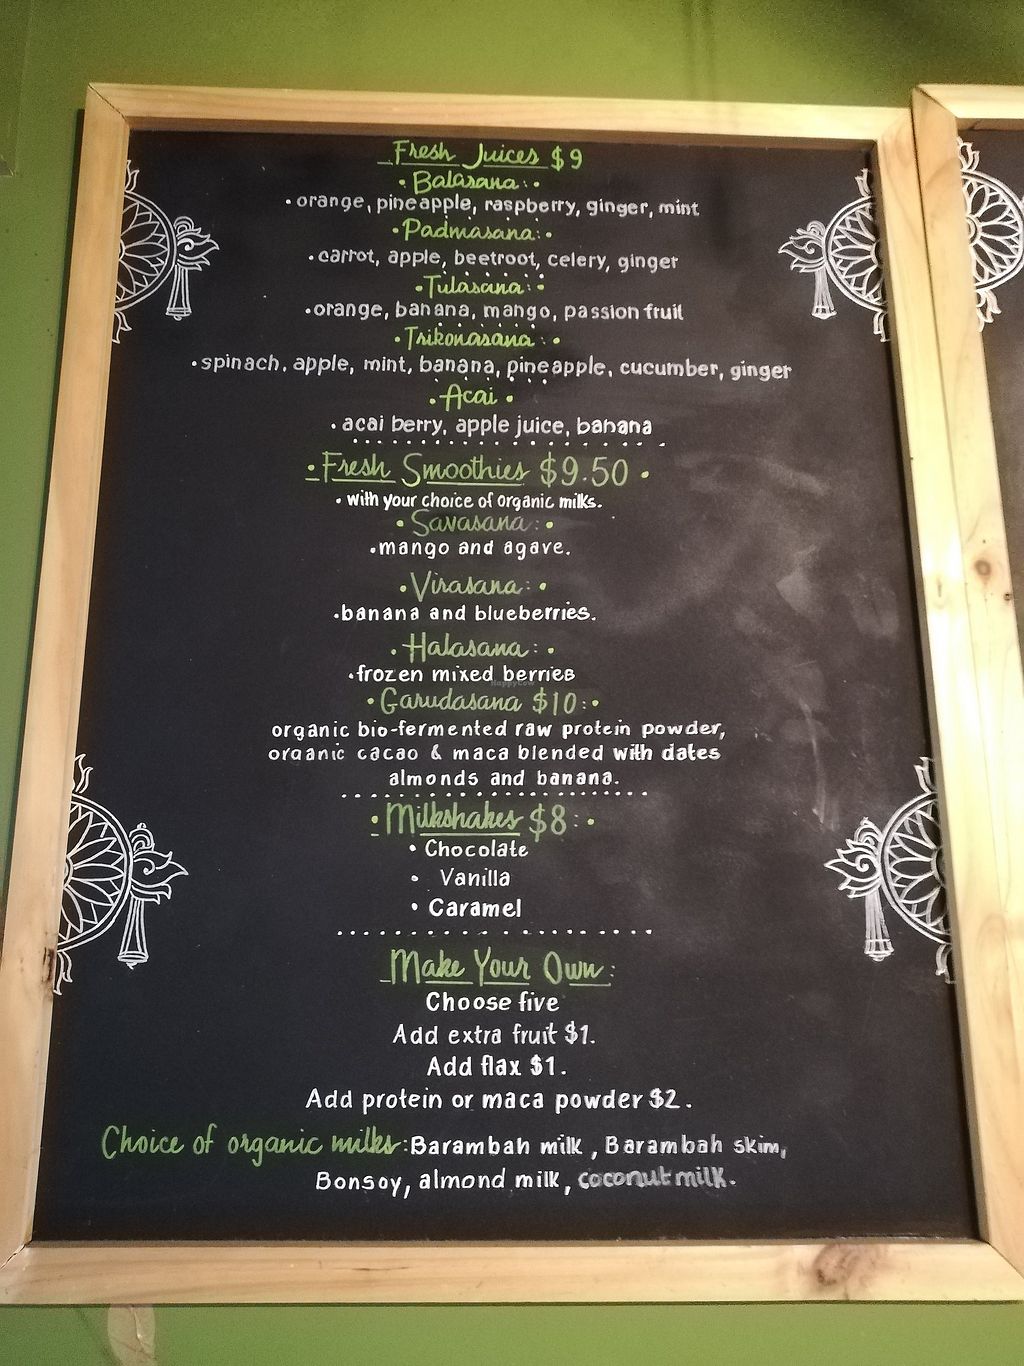 Fresh Juices $9
• Balasana: •
• orange, pineapple, raspberry, ginger, mint
• Padmasana: •
• carrot, apple, beetroot, celery, ginger
• Tulasana: •
• orange, banana, mango, passion fruit
• Trikonasana: •
• spinach, apple, mint, banana, pineapple, cucumber, ginger
• Acai •
• acai berry, apple juice, banana
• Fresh Smoothies $9.50 •
• with your choice of organic milks.
• Savasana: •
• mango and agave.
• Virasana: •
• banana and blueberries.
• Halasana: •
• frozen mixed berries
HappyCow
• Garudasana $10: •
organic bio-fermented raw protein powder,
organic cacao & maca blended with dates
almonds and banana.
• Milkshakes $8: •
• Chocolate
• Vanilla
• Caramel
Make Your Own:
Choose five
Add extra fruit $1.
Add flax $1.
Add protein or maca powder $2.
Choice of organic milks: Barambah milk, Barambah skim,
Bonsoy, almond milk, coconut milk.